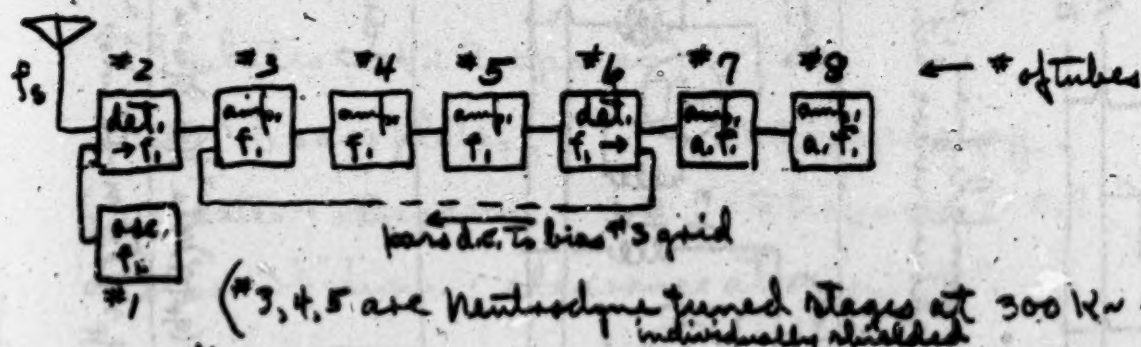 #2 #3 #4 #5 #6 #7 #8 ← # of tubes
fs
det. → f1
amp. f1
amp. f1
amp. f1
det. f1 →
amp. a.f.
amp. a.f.
osc. fh
#1
← pass d.c. to bias #3 grid
(#3, 4, 5 are Neutrodyne tuned stages at 300 K~
individually shielded